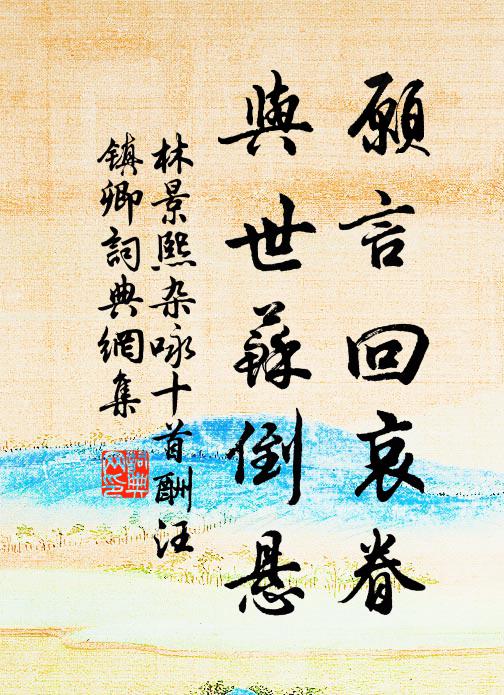 願言回哀眷
與世蘇倒懸
林景熙杂咏十首酬汪
鎮卿詞典網集